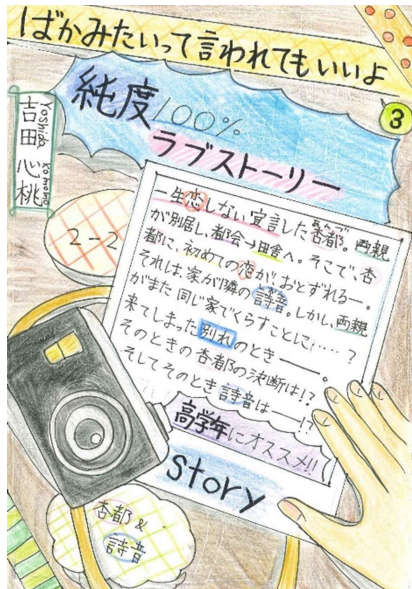 ばかみたいって言われてもいいよ
3
純度100%
ラブストーリー
吉田 心桃
Yoshida Komomo
2-2
一生恋しない宣言した杏都。両親
あんず
が別居し、都会→田舎へ。そこで、杏
都に、初めての恋が、おとずれる―。
それは、家が隣の詩音。しかし、両親
がまた同じ家でくらすことに……?
来てしまった別れのとき――。
そのときの杏都の決断は!?
そしてそのとき詩音は――!?
高学年にオススメ!!
story
杏都&
詩音